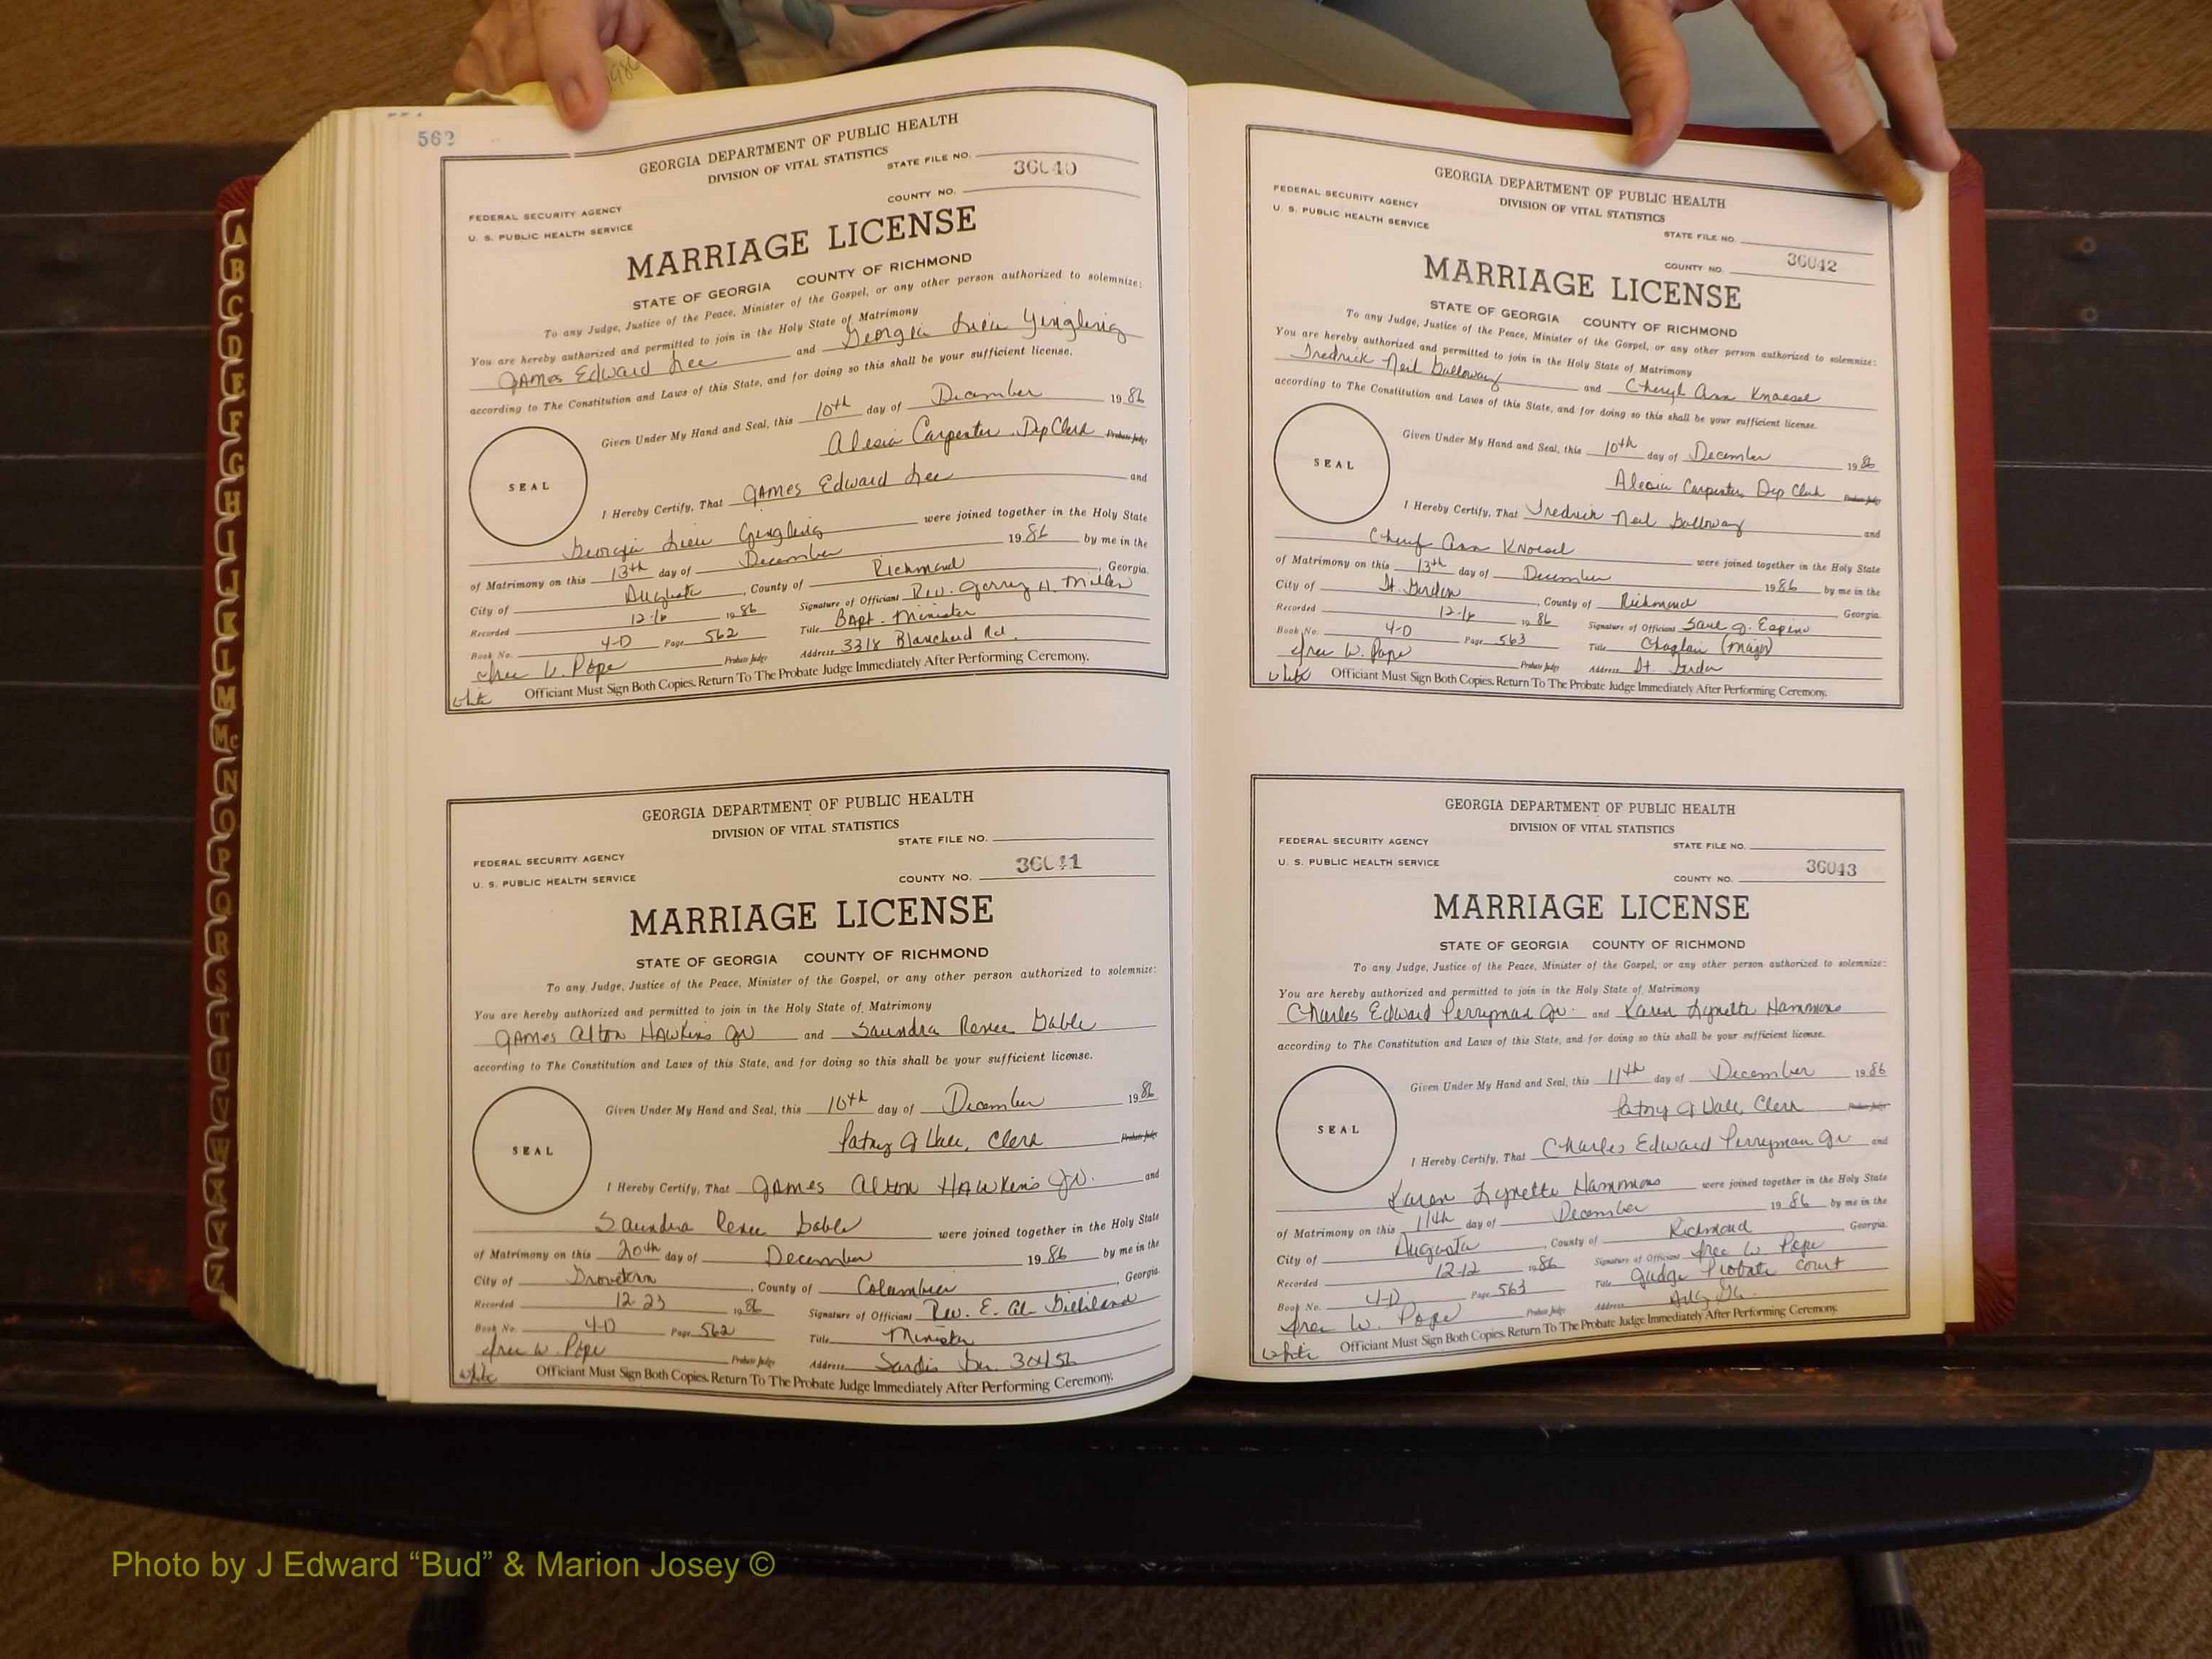 562
GEORGIA DEPARTMENT OF PUBLIC HEALTH
DIVISION OF VITAL STATISTICS
STATE FILE NO.
36040
FEDERAL SECURITY AGENCY
COUNTY NO.
U. S. PUBLIC HEALTH SERVICE
MARRIAGE LICENSE
STATE OF GEORGIA COUNTY OF RICHMOND
To any Judge, Justice of the Peace, Minister of the Gospel, or any other person authorized to solemnize:
You are hereby authorized and permitted to join in the Holy State of Matrimony
James Edward Lee and Georgia Yingling
according to The Constitution and Laws of this State, and for doing so this shall be your sufficient license.
Given Under My Hand and Seal, this 10th day of December 1986
Alesia Carpenter, Dep Clerk Probate Judge
SEAL
I Hereby Certify, That James Edward Lee and
Georgia were joined together in the Holy State
of Matrimony on this 13th day of December 1986 by me in the
City of Augusta, County of Richmond, Georgia.
Recorded 12-16 1986 Signature of Officiant Rev. Jerry H. Miller
Book No. 4-D Page 562 Title Bapt. Minister
W. Pope Probate Judge Address 3318 Blanchard Rd.
white Officiant Must Sign Both Copies. Return To The Probate Judge Immediately After Performing Ceremony.
GEORGIA DEPARTMENT OF PUBLIC HEALTH
DIVISION OF VITAL STATISTICS
STATE FILE NO.
FEDERAL SECURITY AGENCY
36041
U. S. PUBLIC HEALTH SERVICE
COUNTY NO.
MARRIAGE LICENSE
STATE OF GEORGIA COUNTY OF RICHMOND
To any Judge, Justice of the Peace, Minister of the Gospel, or any other person authorized to solemnize:
You are hereby authorized and permitted to join in the Holy State of Matrimony
James Alton Hawkins Jr and Saundra Renee Gable
according to The Constitution and Laws of this State, and for doing so this shall be your sufficient license.
Given Under My Hand and Seal, this 10th day of December 1986
Patsy J Hall, Clerk Probate Judge
SEAL
I Hereby Certify, That James Alton Hawkins Jr. and
Saundra Renee Gable were joined together in the Holy State
of Matrimony on this 20th day of December 1986 by me in the
City of Grovetown, County of Columbia, Georgia.
Recorded 12-23 1986 Signature of Officiant Rev. E. Al Gilliland
Book No. 4-D Page 562 Title Minister
W. Pope Probate Judge Address Sardis Ga. 30456
white Officiant Must Sign Both Copies. Return To The Probate Judge Immediately After Performing Ceremony.
GEORGIA DEPARTMENT OF PUBLIC HEALTH
DIVISION OF VITAL STATISTICS
FEDERAL SECURITY AGENCY
U. S. PUBLIC HEALTH SERVICE
STATE FILE NO.
36042
COUNTY NO.
MARRIAGE LICENSE
STATE OF GEORGIA COUNTY OF RICHMOND
To any Judge, Justice of the Peace, Minister of the Gospel, or any other person authorized to solemnize:
You are hereby authorized and permitted to join in the Holy State of Matrimony
Fredrick Neil Galloway and Cheryl Ann Knoesel
according to The Constitution and Laws of this State, and for doing so this shall be your sufficient license.
Given Under My Hand and Seal, this 10th day of December 1986
Alesia Carpenter, Dep Clerk Probate Judge
SEAL
I Hereby Certify, That Fredrick Neil Galloway and
Cheryl Ann Knoesel were joined together in the Holy State
of Matrimony on this 13th day of December 1986 by me in the
City of Ft. Gordon, County of Richmond Georgia.
Recorded 12-16 1986 Signature of Officiant Saul J. Espino
Book No. 4-D Page 563 Title Chaplain (Major)
W. Pope Probate Judge Address Ft. Gordon
white Officiant Must Sign Both Copies. Return To The Probate Judge Immediately After Performing Ceremony.
GEORGIA DEPARTMENT OF PUBLIC HEALTH
DIVISION OF VITAL STATISTICS
FEDERAL SECURITY AGENCY
STATE FILE NO.
U. S. PUBLIC HEALTH SERVICE
36043
COUNTY NO.
MARRIAGE LICENSE
STATE OF GEORGIA COUNTY OF RICHMOND
To any Judge, Justice of the Peace, Minister of the Gospel, or any other person authorized to solemnize:
You are hereby authorized and permitted to join in the Holy State of Matrimony
Charles Edward Perryman Jr. and Karen Lynette Hammons
according to The Constitution and Laws of this State, and for doing so this shall be your sufficient license.
Given Under My Hand and Seal, this 11th day of December 1986
Patsy J Hall, Clerk Probate Judge
SEAL
I Hereby Certify, That Charles Edward Perryman Jr and
Karen Lynette Hammons were joined together in the Holy State
of Matrimony on this 11th day of December 1986 by me in the
City of Augusta, County of Richmond, Georgia.
Recorded 12-12 1986 Signature of Officiant W. Pope
Book No. 4-D Page 563 Title Judge Probate Court
W. Pope Probate Judge Address Aug Ga.
white Officiant Must Sign Both Copies. Return To The Probate Judge Immediately After Performing Ceremony.
A
B
C
D
E
F
G
H
I
J
K
L
M
Mc
N
O
P
Q
R
S
T
U
V
W
X
Y
Z
Photo by J Edward “Bud” & Marion Josey ©